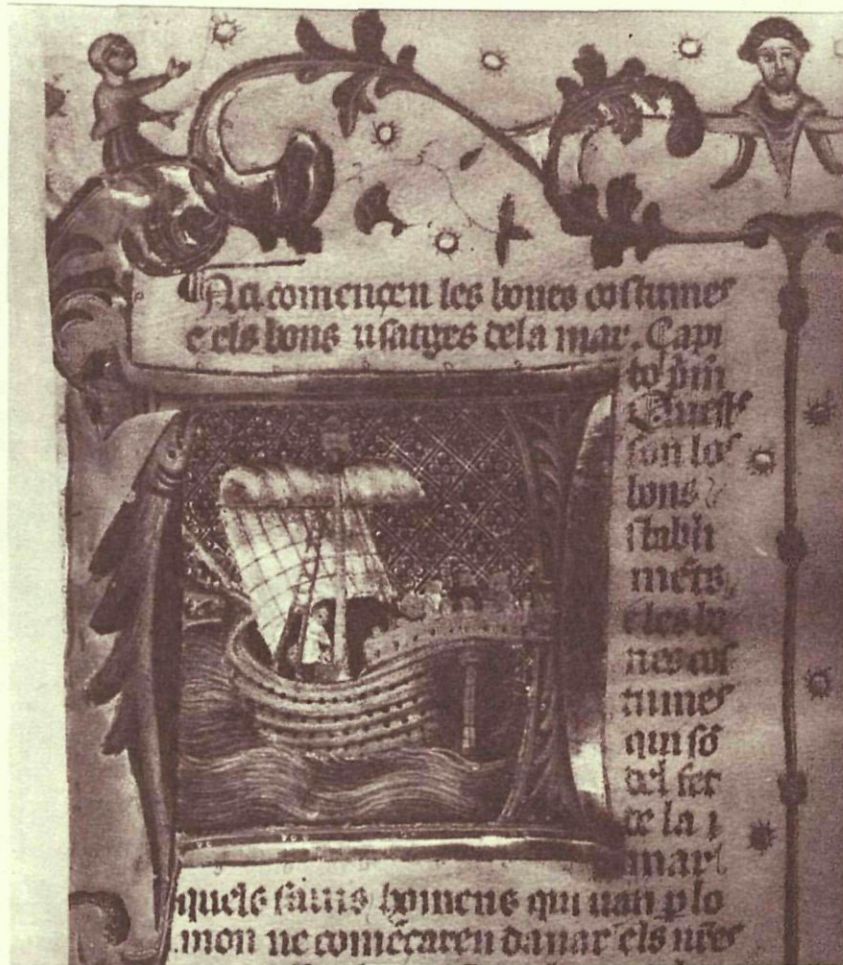 Aci comencen les bones costumes
e els bons usatges dela mar. Capi
to p̄m
Quests
son los
bons
stabli
mēts,
e les bo
nes cos
tumes
qui sō
del fet
de la
mar
quels sauis homens qui uan p lo
mon ne comēçaren danar els nr̄es